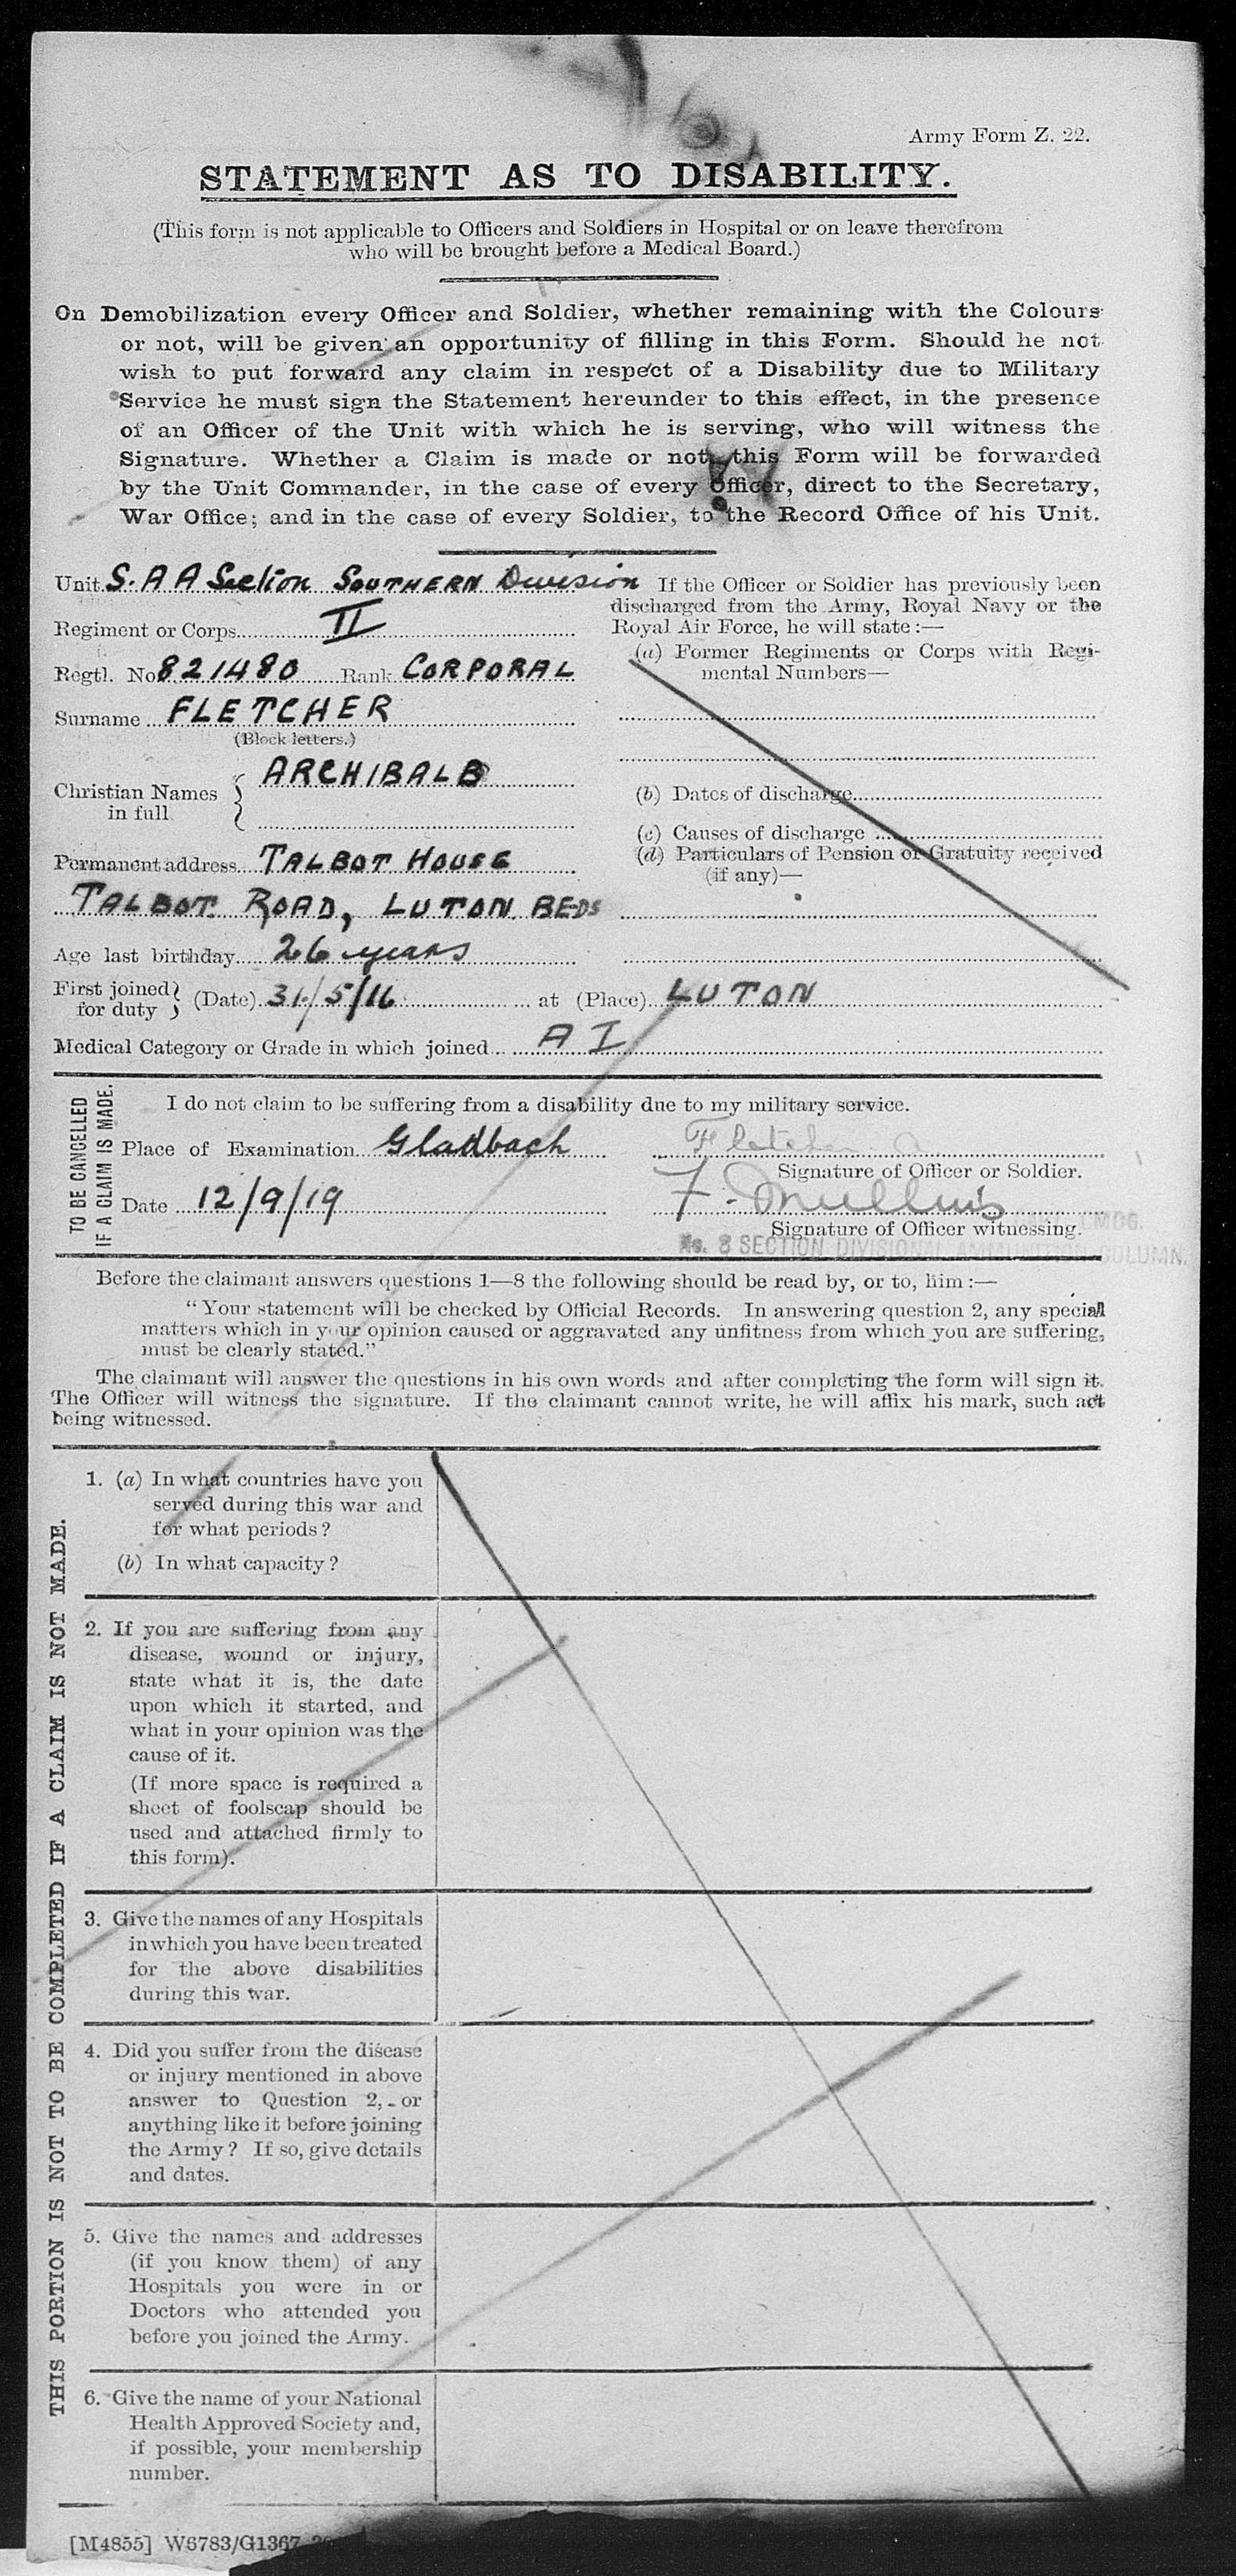 Army Form Z. 22.
STATEMENT AS TO DISABILITY.
(This form is not applicable to Officers and Soldiers in Hospital or on leave therefrom
who will be brought before a Medical Board.)
On Demobilization every Officer and Soldier, whether remaining with the Colours
or not, will be given an opportunity of filling in this Form. Should he not
wish to put forward any claim in respect of a Disability due to Military
Service he must sign the Statement hereunder to this effect, in the presence
of an Officer of the Unit with which he is serving, who will witness the
Signature. Whether a Claim is made or not, this Form will be forwarded
by the Unit Commander, in the case of every Officer, direct to the Secretary,
War Office; and in the case of every Soldier, to the Record Office of his Unit.
Unit S.A A Section SOUTHERN Division
Regiment or Corps II
Regtl. No 821480 Rank CORPORAL
Surname FLETCHER
(Block letters.)
Christian Names in full ARCHIBALD
Permanent address TALBOT HOUSE
TALBOT ROAD, LUTON BEDS
Age last birthday 26 years
If the Officer or Soldier has previously been
discharged from the Army, Royal Navy or the
Royal Air Force, he will state:—
(a) Former Regiments or Corps with Regi-
mental Numbers—
(b) Dates of discharge
(c) Causes of discharge
(d) Particulars of Pension or Gratuity received
(if any)—
First joined for duty (Date) 31/5/16 at (Place) LUTON
Medical Category or Grade in which joined A I
TO BE CANCELLED
IF A CLAIM IS MADE.
I do not claim to be suffering from a disability due to my military service.
Place of Examination Gladbach Fletcher A
Signature of Officer or Soldier.
Date 12/9/19 F.
Signature of Officer witnessing.
CMDG.
No. 3 SECTION DIVISIONAL AMMUNITION COLUMN.
Before the claimant answers questions 1—8 the following should be read by, or to, him:—
"Your statement will be checked by Official Records. In answering question 2, any special
matters which in your opinion caused or aggravated any unfitness from which you are suffering,
must be clearly stated."
The claimant will answer the questions in his own words and after completing the form will sign it.
The Officer will witness the signature. If the claimant cannot write, he will affix his mark, such act
being witnessed.
THIS PORTION IS NOT TO BE COMPLETED IF A CLAIM IS NOT MADE.
1. (a) In what countries have you
served during this war and
for what periods?
(b) In what capacity?
2. If you are suffering from any
disease, wound or injury,
state what it is, the date
upon which it started, and
what in your opinion was the
cause of it.
(If more space is required a
sheet of foolscap should be
used and attached firmly to
this form).
3. Give the names of any Hospitals
in which you have been treated
for the above disabilities
during this war.
4. Did you suffer from the disease
or injury mentioned in above
answer to Question 2, or
anything like it before joining
the Army? If so, give details
and dates.
5. Give the names and addresses
(if you know them) of any
Hospitals you were in or
Doctors who attended you
before you joined the Army.
6. Give the name of your National
Health Approved Society and,
if possible, your membership
number.
[M4855] W6783/G1367